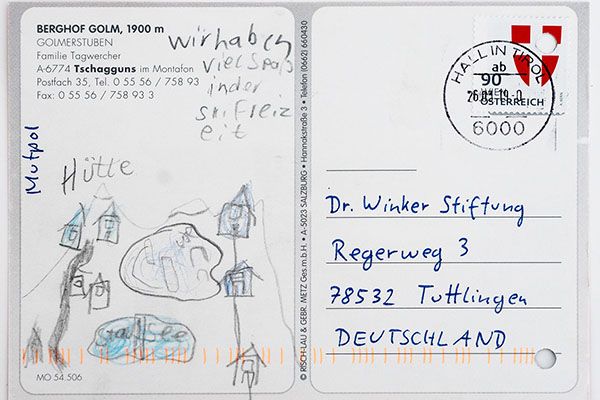 BERGHOF GOLM, 1900 m
GOLMERSTUBEN
Familie Tagwercher
A-6774 Tschagguns im Montafon
Postfach 35, Tel. 0 55 56 / 758 93
Fax: 0 55 56 / 758 93 3
wir haben
viel Spaß
in der
skifreiz
eit
Mutpol
Hütte
MO 54.506
© RISCH-LAU & GEBR. METZ Ges.m.b.H. • A-5023 SALZBURG • Hannakstraße 3 • Telefon (0662) 660430
HALL IN TIROL
ab
90
ÖSTERREICH
6000
Dr. Winker Stiftung
Regerweg 3
78532 Tuttlingen
DEUTSCHLAND